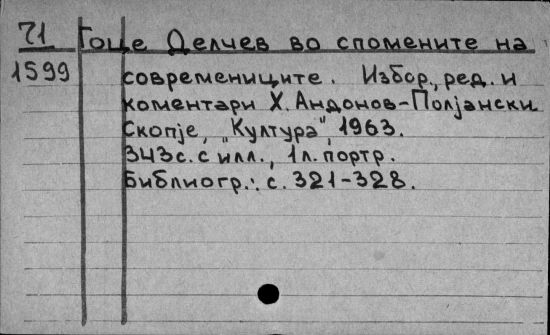 71 Гоце Делчев во спомените на
1599 современиците. Избор., ред. и
коментари Х. Андонов-Полјански
Скопје, "Култура", 1963.
343 с. с илл., 1 л. портр.
Библиогр.: с. 321-328.